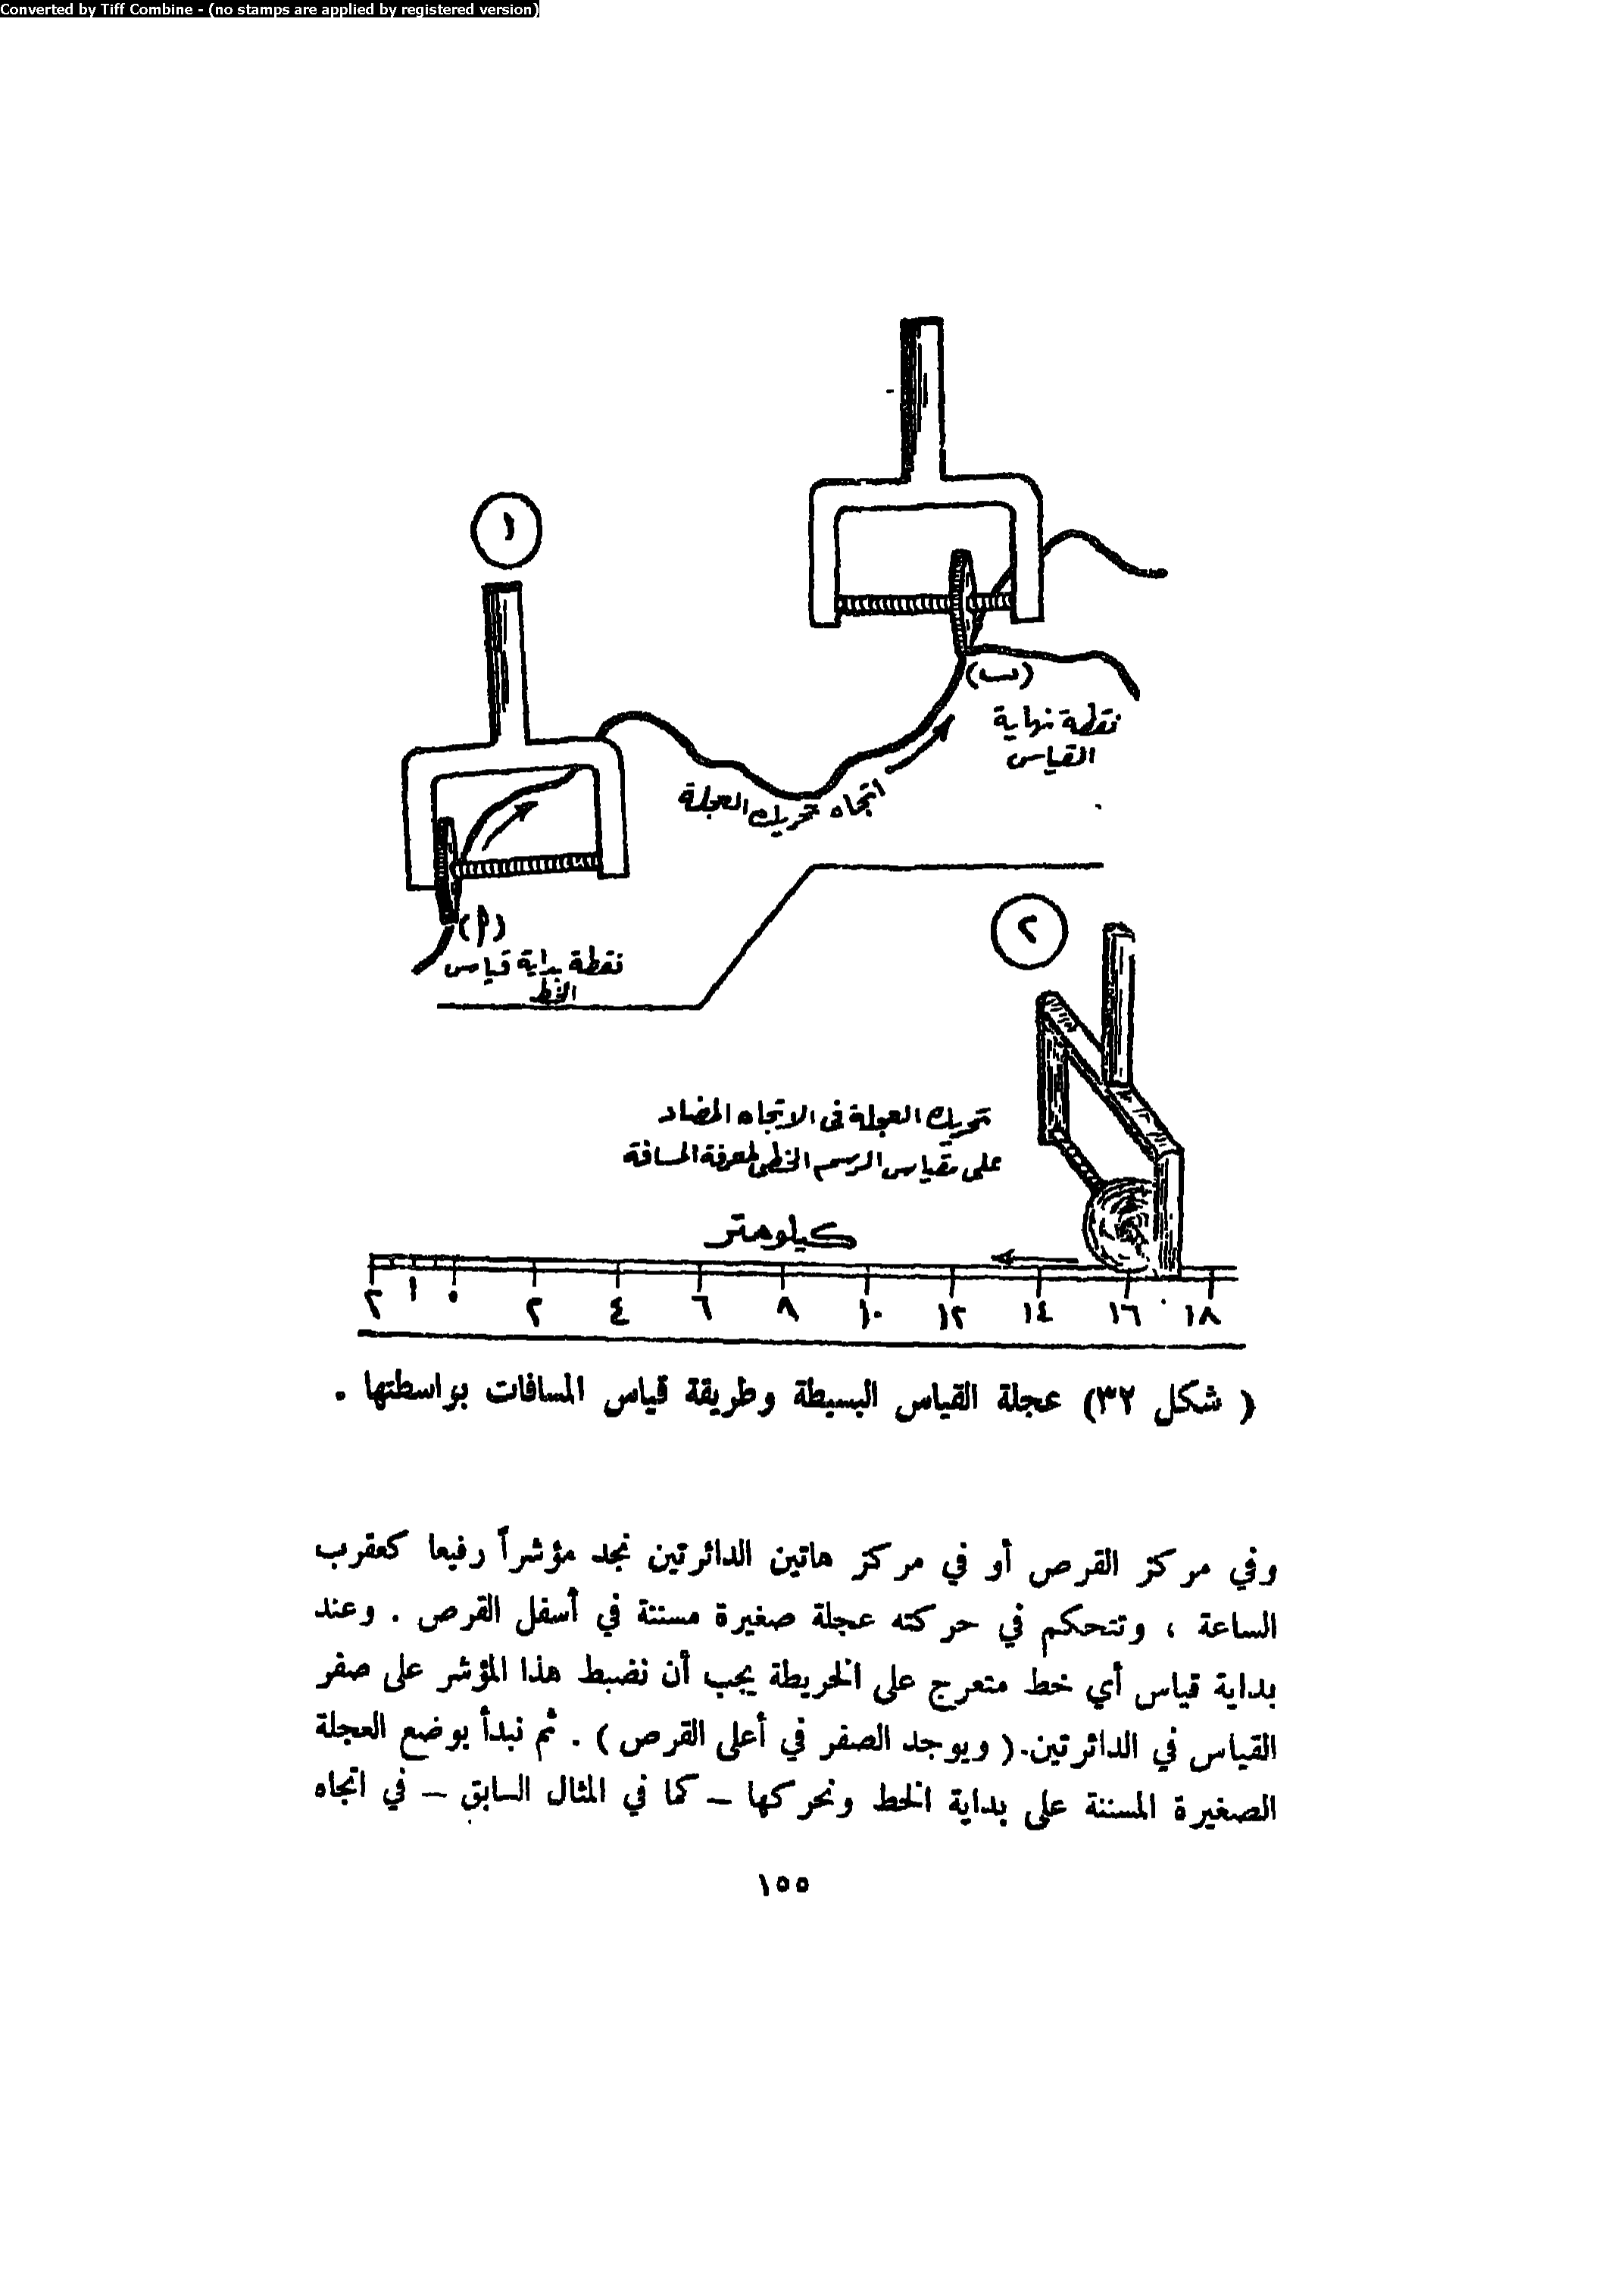 Converted by Tiff Combine - (no stamps are applied by registered version)
١
(ب)
نقطة نهاية
القياس
اتجاه تحريك العجلة
(أ)
نقطة بداية قياس
الخط
٢
تحريك العجلة فى الاتجاه المضاد
على مقياس الرسم الخطى لمعرفة المسافة
كيلومتر
٢ ١ ٠ ٢ ٤ ٦ ٨ ١٠ ١٢ ١٤ ١٦ ١٨
( شكل ٣٢) عجلة القياس البسيطة وطريقة قياس المسافات بواسطتها .
وفي مركز القرص أو في مركز هاتين الدائرتين نجد مؤشراً رفيعا كعقرب
الساعة ، وتتحكم في حركته عجلة صغيرة مسننة في أسفل القرص . وعند
بداية قياس أي خط متعرج على الخريطة يجب أن نضبط هذا المؤشر على صفر
القياس في الدائرتين.( ويوجد الصفر في أعلى القرص ) . ثم نبدأ بوضع العجلة
الصغيرة المسننة على بداية الخط ونحركها – كما في المثال السابق – في اتجاه
١٥٥